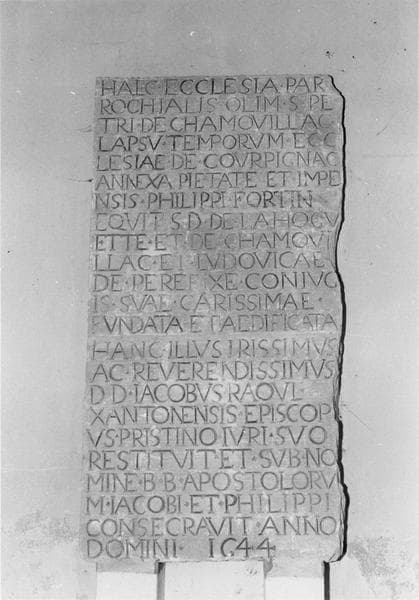 HAEC·ECCLESIA·PAR
ROCHIALIS·OLIM·S·PE
TRI·DE·CHAMOVILLAC
LAPSV·TEMPORVM·ECC
LESIAE·DE·COVRPIGNAC
ANNEXA PIETATE ET IMPE
NSIS·PHILIPPI·FORTIN
EQVIT·S·D·DE·LA·HOGV
ETTE·ET·DE·CHAMOVI
LLAC·ET·LVDOVICAE
DE·PEREFIXE·CONIVG
IS·SVAE·CARISSIMAE·
FVNDATA·ET·AEDIFICATA
HANC·ILLVSTRISSIMVS
AC·REVERENDISSIMVS
D·D·IACOBVS·RAOVL·
XANTONENSIS·EPISCOP
VS·PRISTINO·IVRI·SVO
RESTITVIT·ET·SVB·NO
MINE·B·B·APOSTOLORV
M·IACOBI·ET·PHILIPPI
CONSECRAVIT·ANNO
DOMINI· 1644·